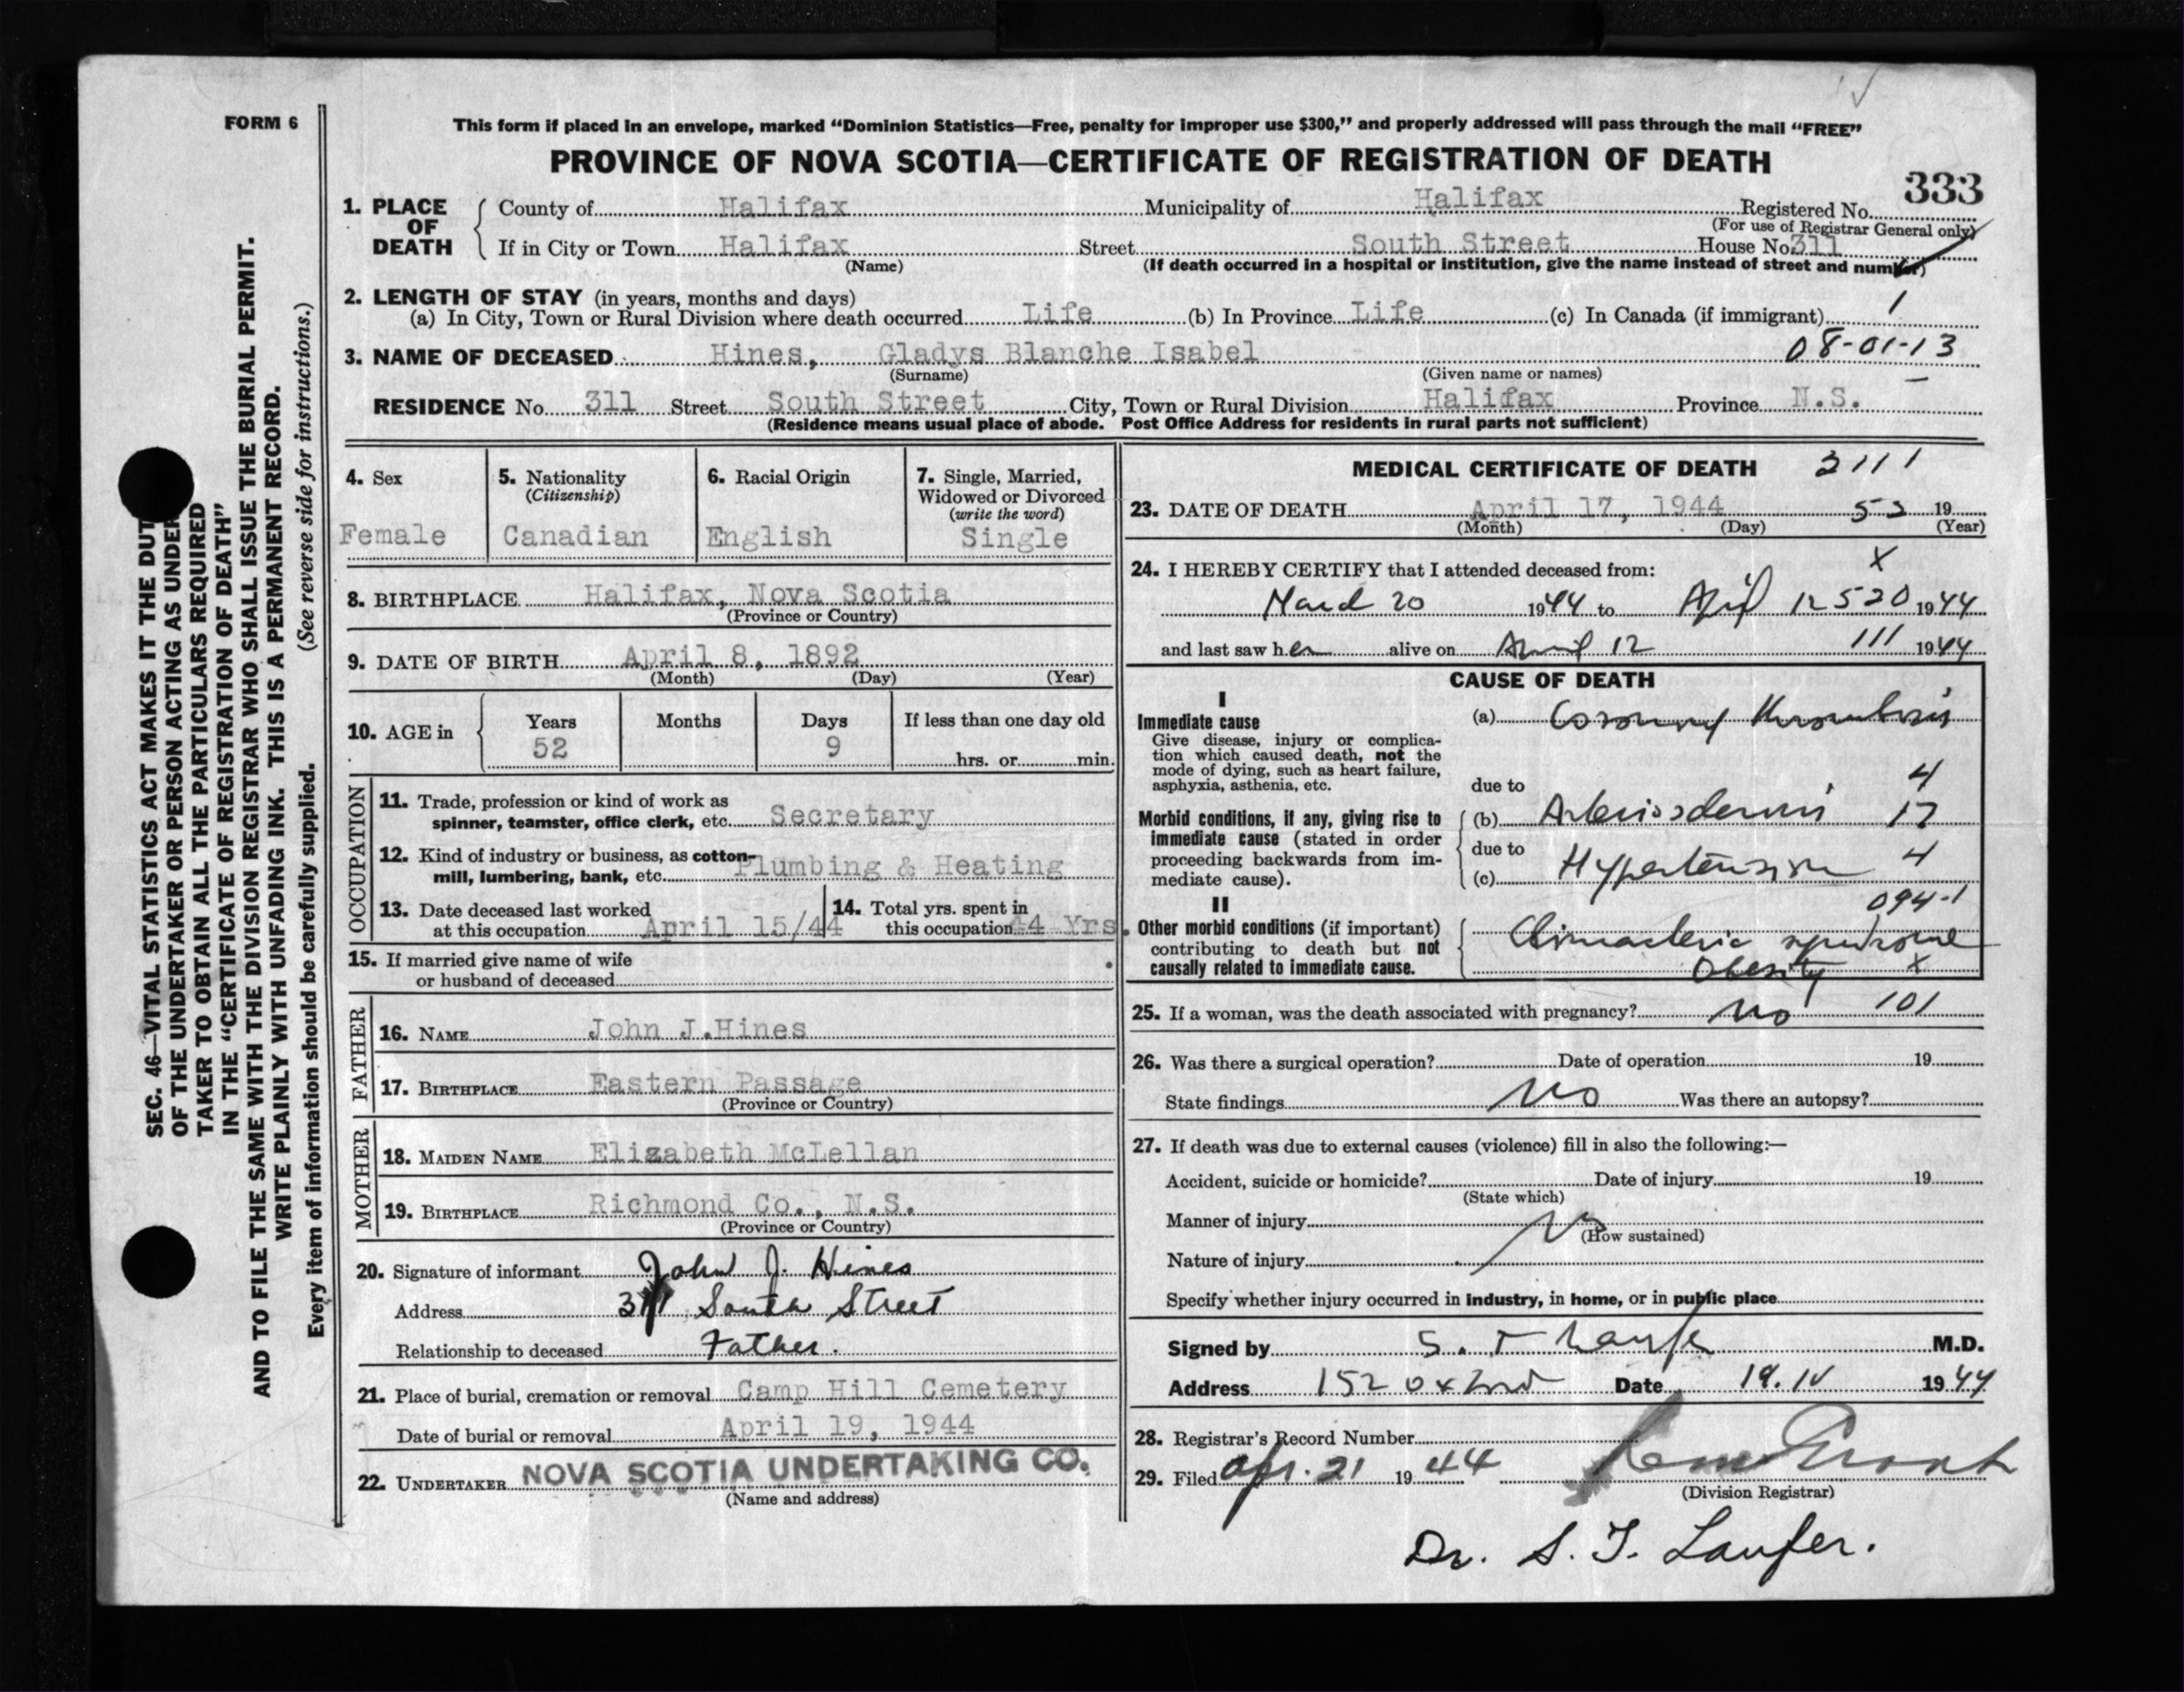 FORM 6
This form if placed in an envelope, marked “Dominion Statistics—Free, penalty for improper use $300,” and properly addressed will pass through the mail “FREE”
PROVINCE OF NOVA SCOTIA—CERTIFICATE OF REGISTRATION OF DEATH
333
1. PLACE OF DEATH
County of Halifax Municipality of Halifax Registered No.
(For use of Registrar General only)
If in City or Town Halifax Street South Street House No. 311
(Name) (If death occurred in a hospital or institution, give the name instead of street and number)
2. LENGTH OF STAY (in years, months and days)
(a) In City, Town or Rural Division where death occurred Life (b) In Province Life (c) In Canada (if immigrant) 1
3. NAME OF DECEASED Hines, Gladys Blanche Isabel 08-01-13
(Surname) (Given name or names)
RESIDENCE No. 311 Street South Street City, Town or Rural Division Halifax Province N.S.
(Residence means usual place of abode. Post Office Address for residents in rural parts not sufficient)
4. Sex
Female
5. Nationality
(Citizenship)
Canadian
6. Racial Origin
English
7. Single, Married,
Widowed or Divorced
(write the word)
Single
8. BIRTHPLACE Halifax, Nova Scotia
(Province or Country)
9. DATE OF BIRTH April 8, 1892
(Month) (Day) (Year)
10. AGE in
Years Months Days If less than one day old
52 9 hrs. or min.
OCCUPATION
11. Trade, profession or kind of work as
spinner, teamster, office clerk, etc. Secretary
12. Kind of industry or business, as cotton-
mill, lumbering, bank, etc. Plumbing & Heating
13. Date deceased last worked
at this occupation April 15/44
14. Total yrs. spent in
this occupation 44 Yrs.
15. If married give name of wife
or husband of deceased
FATHER
16. NAME John J.Hines
17. BIRTHPLACE Eastern Passage
(Province or Country)
MOTHER
18. MAIDEN NAME Elizabeth McLellan
19. BIRTHPLACE Richmond Co., N.S.
(Province or Country)
20. Signature of informant John J. Hines
Address 311 South Street
Relationship to deceased Father.
21. Place of burial, cremation or removal Camp Hill Cemetery
Date of burial or removal April 19, 1944
22. UNDERTAKER NOVA SCOTIA UNDERTAKING CO.
(Name and address)
MEDICAL CERTIFICATE OF DEATH 2111
23. DATE OF DEATH April 17, 1944 19
(Month) (Day) (Year)
24. I HEREBY CERTIFY that I attended deceased from: X
March 20 1944 to April 12 520 1944
and last saw her alive on April 12 111 1944
CAUSE OF DEATH
I
Immediate cause
Give disease, injury or complica-
tion which caused death, not the
mode of dying, such as heart failure,
asphyxia, asthenia, etc.
(a) Coronary thrombosis
due to 4
Morbid conditions, if any, giving rise to
immediate cause (stated in order
proceeding backwards from im-
mediate cause).
(b) Arteriosclerosis 17
due to 4
(c) Hypertension
094-1
II
Other morbid conditions (if important)
contributing to death but not
causally related to immediate cause.
Climacteric syndrome
Obesity X
25. If a woman, was the death associated with pregnancy? No 101
26. Was there a surgical operation? Date of operation 19
State findings No Was there an autopsy?
27. If death was due to external causes (violence) fill in also the following:—
Accident, suicide or homicide? Date of injury 19
(State which)
Manner of injury No
(How sustained)
Nature of injury
Specify whether injury occurred in industry, in home, or in public place
Signed by S. T. Laufer M.D.
Address 152 Oxford Date 19.IV 1944
28. Registrar's Record Number
29. Filed Apr. 21 1944
(Division Registrar)
Dr. S. T. Laufer.
SEC. 46—VITAL STATISTICS ACT MAKES IT THE DUT
OF THE UNDERTAKER OR PERSON ACTING AS UNDER
TAKER TO OBTAIN ALL THE PARTICULARS REQUIRED
IN THE “CERTIFICATE OF REGISTRATION OF DEATH”
AND TO FILE THE SAME WITH THE DIVISION REGISTRAR WHO SHALL ISSUE THE BURIAL PERMIT.
WRITE PLAINLY WITH UNFADING INK. THIS IS A PERMANENT RECORD.
Every item of information should be carefully supplied. (See reverse side for instructions.)